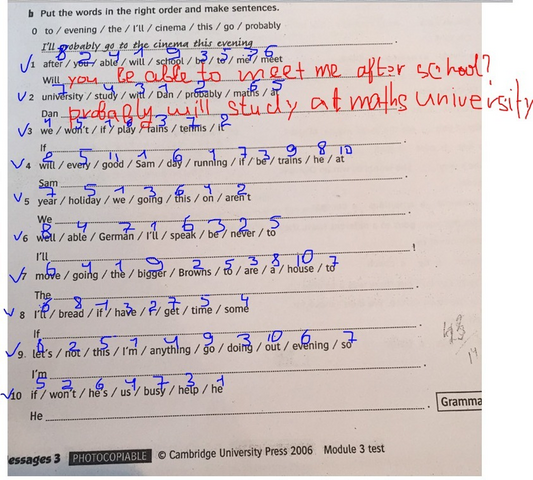 b Put the words in the right order and make sentences.
0 to / evening / the / I'll / cinema / this / go / probably
I'll probably go to the cinema this evening.
1 after / you / able / will / school / be / to / me / meet
Will you be able to meet me after school?
2 university / study / will / Dan / probably / maths / at
Dan probably will study at maths university
3 we / won't / if / play / rains / tennis / it
If
4 will / every / good / Sam / day / running / if / be / trains / he / at
Sam
5 year / holiday / we / going / this / on / aren't
We
6 well / able / German / I'll / speak / be / never / to
I'll !
7 move / going / the / bigger / Browns / to / are / a / house / to
The
8 I'll / bread / if / have / I / get / time / some
If
9 let's / not / this / I'm / anything / go / doing / out / evening / so
I'm
10 if / won't / he's / us / busy / help / he
He
Gramma
essages 3 PHOTOCOPIABLE © Cambridge University Press 2006 Module 3 test